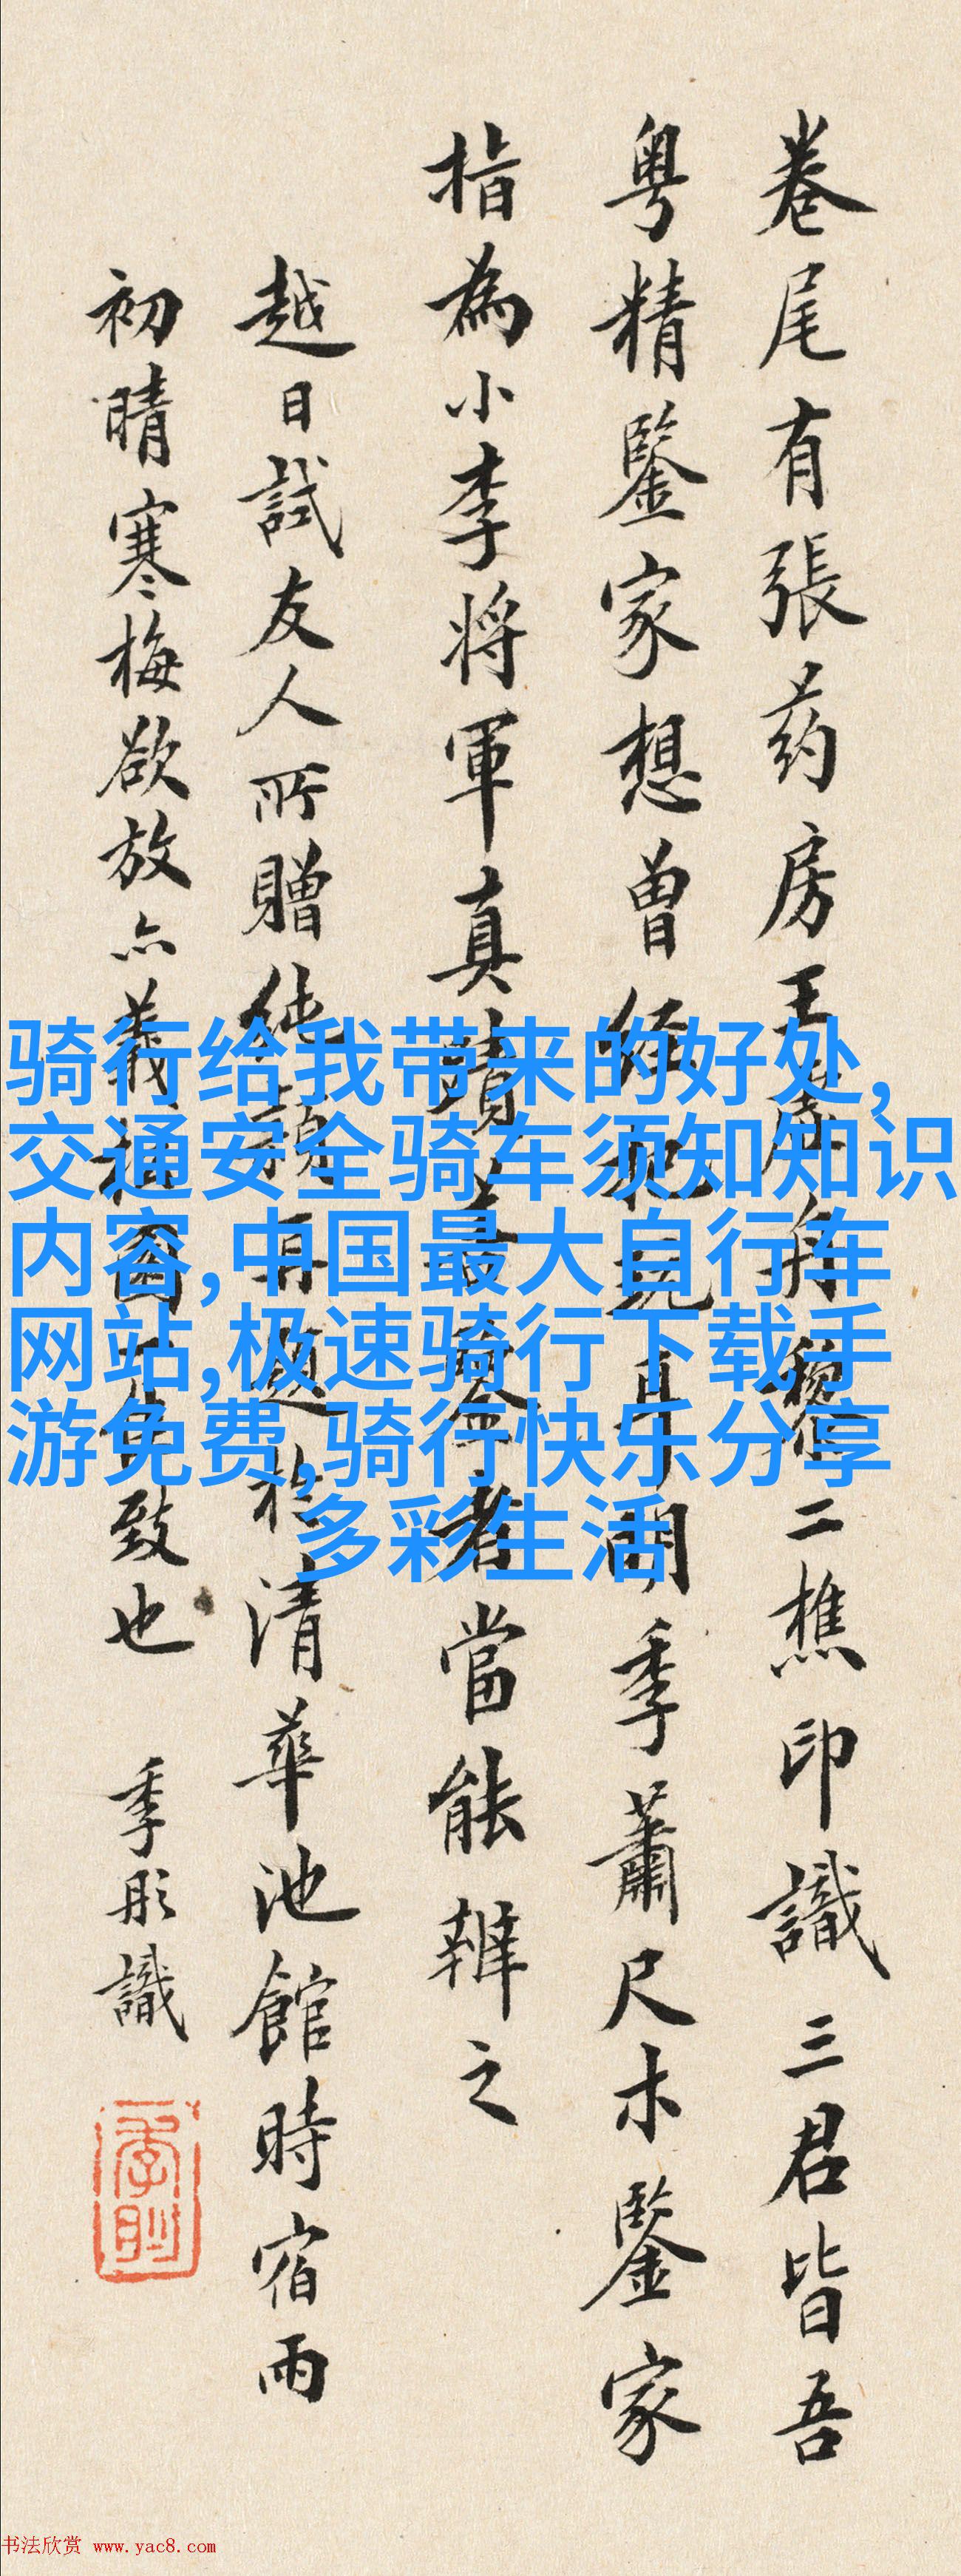 卷尾有張药房王二樵印識三君皆吾
粤精鑒家想曾季蕭尺木鑒家
指為小李将軍真蹟者當能辨之
越日試友人所贈純頴再題於清華池館時宿雨
初晴寒梅欲放亦義致也 季彤識
骑行给我带来的好处,
交通安全骑车须知知识
内容,中国最大自行车
网站,极速骑行下载手
游免费,骑行快乐分享
多彩生活
书法欣赏 www.yac8.com